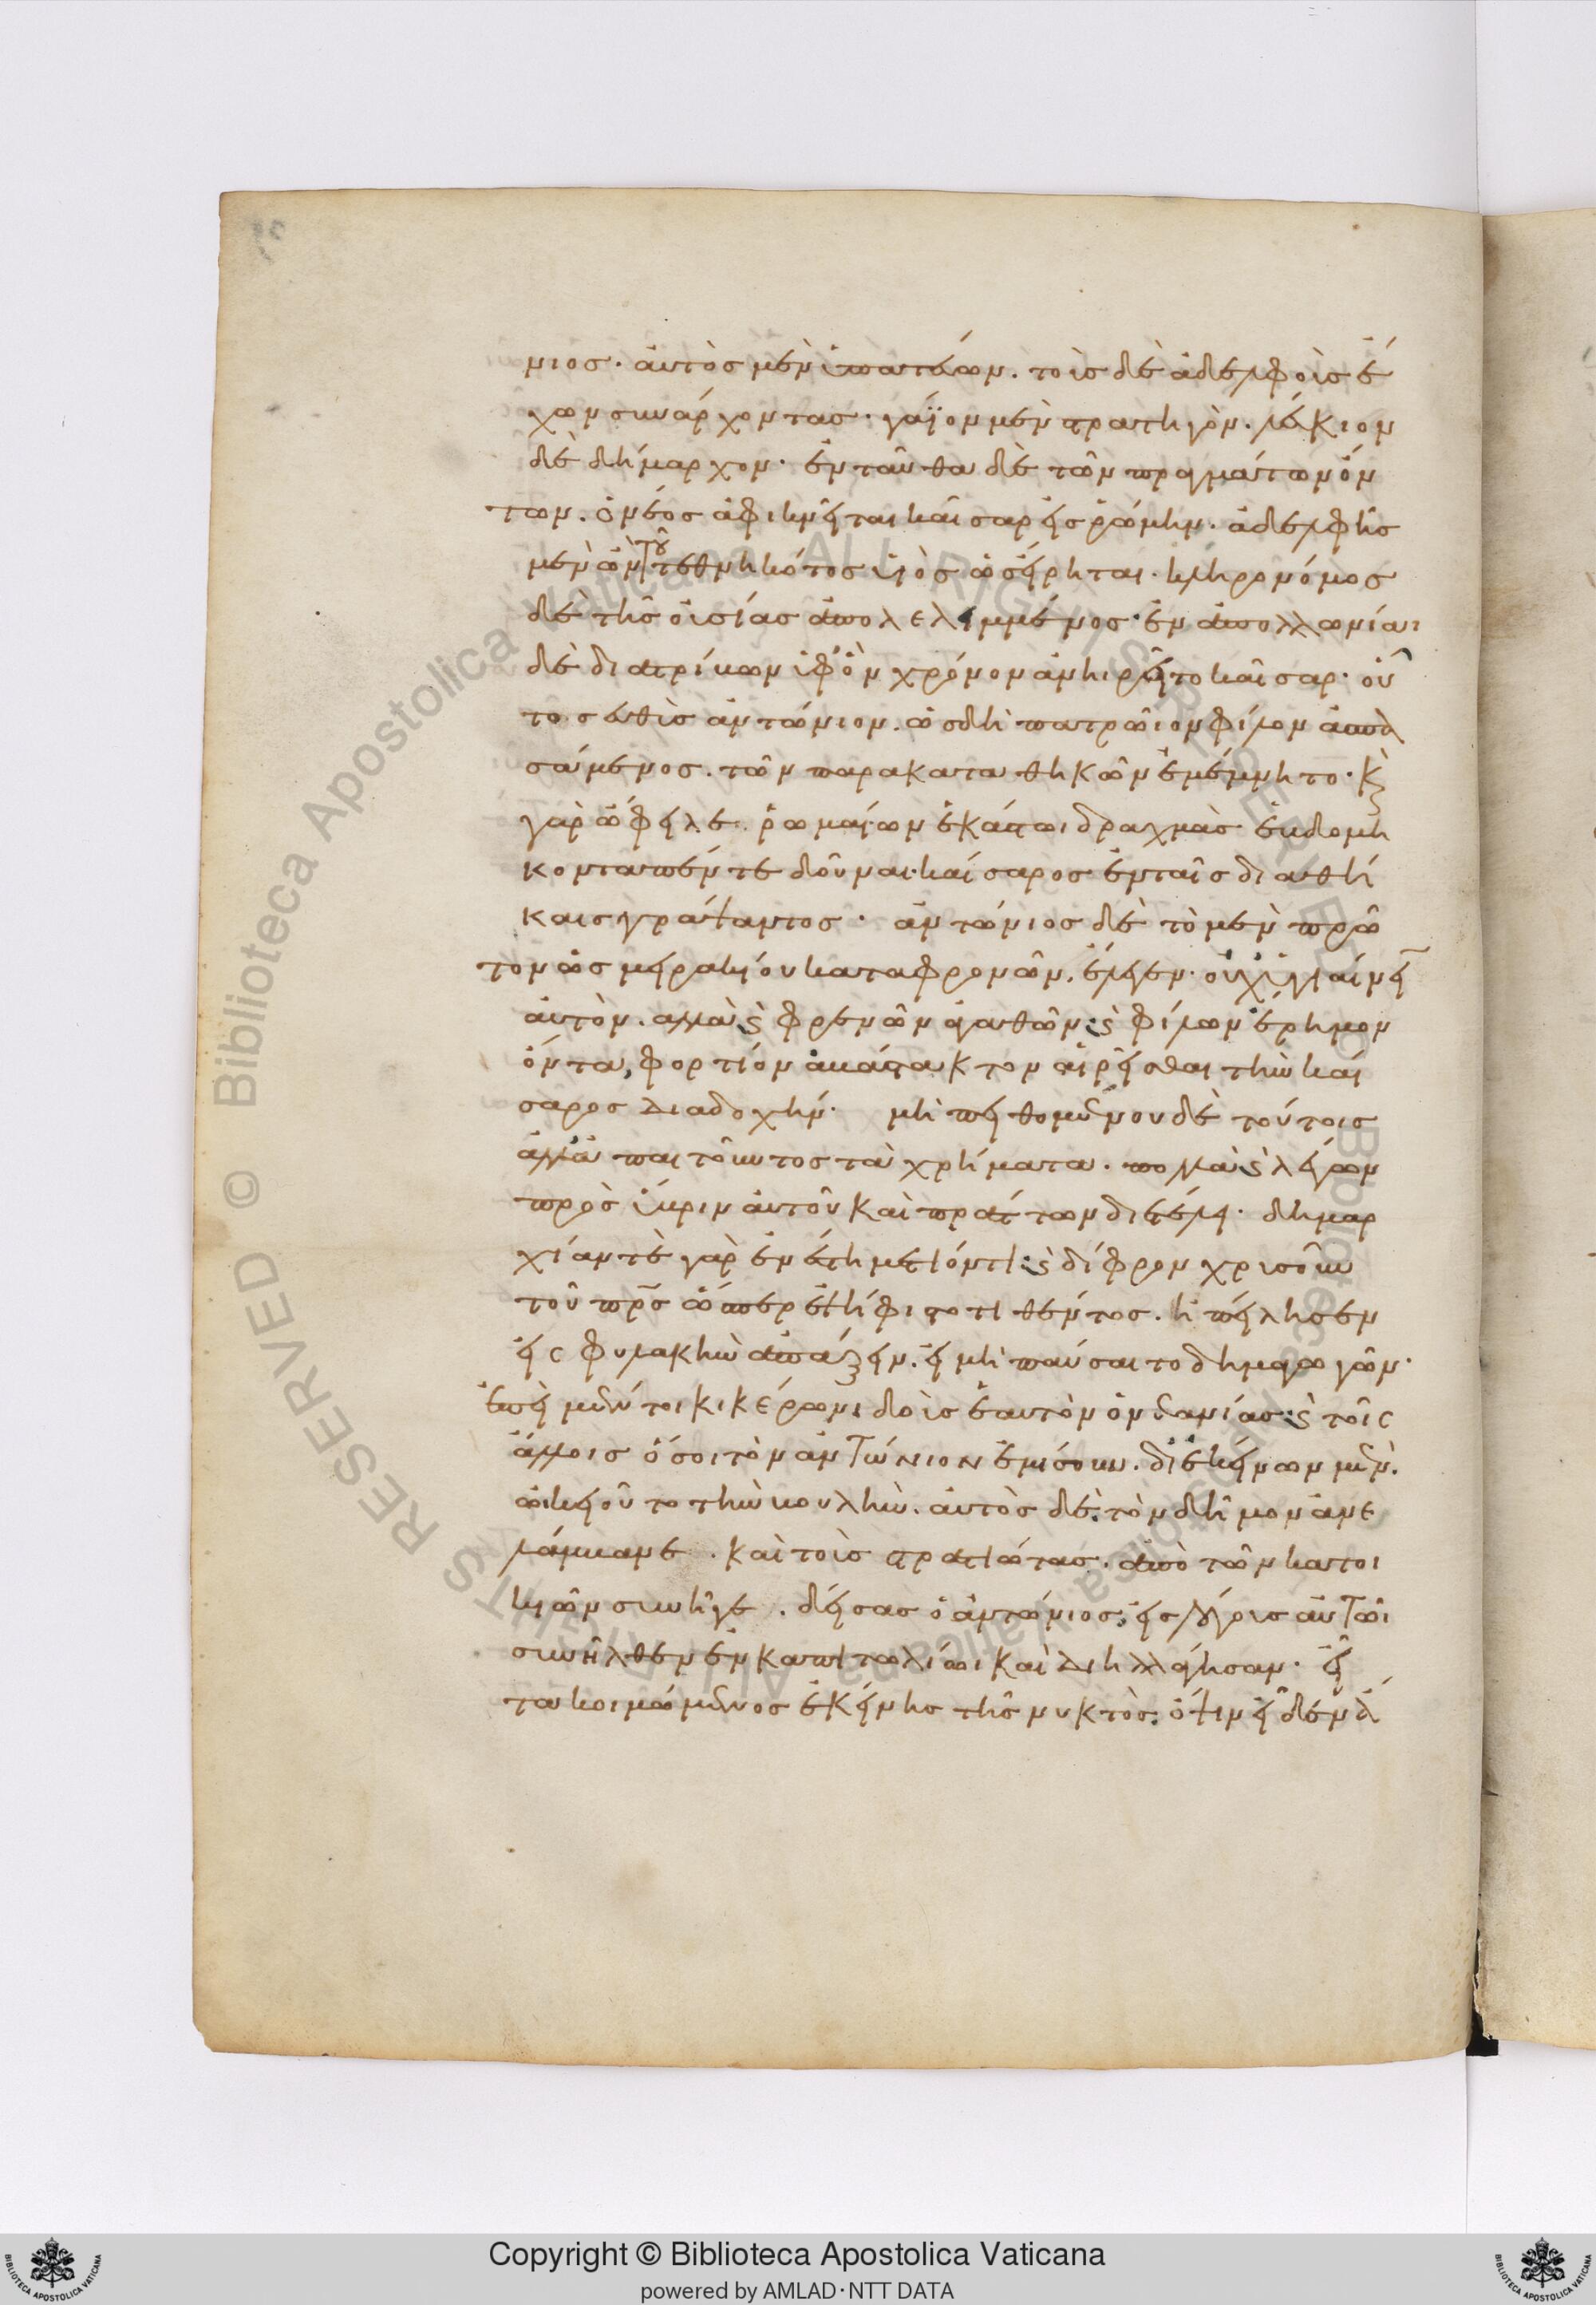 νιος· ἀυτὸς μὲν ὑπατεύων. τοὺς δὲ ἀδελφοὺς ἔ
χων συνάρχοντας· γάϊον μὲν στρατηγὸν. λεύκιον
δὲ δήμαρχον· ἐνταῦθα δὲ τῶν πραγμάτων ὄν
των. ὁ νέος ἀφικνεῖται καῖσαρ εἰς ῥώμην. ἀδελφῆς
μὲν ὢν τοῦ τεθνηκότος υἱὸς ὡς εἴρηται. κληρονόμος
δὲ τῆς οὐσίας ἀπολελειμμένος· ἐν ἀπολλωνίαι
δὲ διατρίβων ὑφ' ὃν χρόνον ἀνηιρεῖτο καῖσαρ· οὗ
τος εὐθὺς ἀντώνιον. ὡς δὴ πατρῶιον φίλον ἀσπα
σάμενος. τῶν παρακαταθηκῶν ἐμέμνητο· κ(αὶ)
γὰρ ὤφειλε. ῥωμαίων ἑκάστωι δραχμὰς ἑβδομή
κοντα πέντε δοῦναι. καίσαρος ἐν ταῖς διαθή
καις γράψαντος· ἀντώνιος δὲ τὸ μὲν πρῶ
τον ὡς μειρακίου καταφρονῶν. ἔλεγεν· οὐχ ὑγιαίνειν
ἀυτὸν. ἀλλὰ ϛ φρενῶν ἀγαθῶν· ϛ φίλων ἔρημον
ὄντα, φορτίον ἀβάστακτον αἱρεῖσθαι τὴν καί
σαρος διαδοχήν· μὴ πειθομένου δὲ τούτοις
ἀλλ' ἀπαιτοῦντος τὰ χρήματα. πολλὰ ϛ λέγων
πρὸς ὕβριν ἀυτοῦ καὶ πράττων διετέλει· δημαρ
χίαν τὲ γὰρ ἐνέστη μετιόντι· ϛ δίφρον χρυσοῦν
τοῦ πρ̅ς ὥσπερ ἐψήφιστο τιθέντος. ἠπείλησεν
εἰς φυλακὴν ἀπάξειν. εἰ μὴ παύσαιτο δημαγωγῶν·
ἐπεὶ μέντοι κικέρωνι δοὺς ἑαυτὸν ὁ νεανίας· ϛ τοῖς
ἄλλοις ὅσοι τὸν ἀντώνιον ἐμίσουν. δι' ἐκείνων μὲν.
ὠικειοῦτο τὴν βουλὴν. ἀυτὸς δὲ. τὸν δῆμον ἀνε
λάμβανε. καὶ τοὺς στρατιώτας. ἀπὸ τῶν κατοι
κιῶν συνῆγε. δείσας ὁ ἀντώνιος. εἰς λόγους ἀυτῶι
συνῆλθεν ἐν καπιτωλίωι καὶ διηλλάγησαν· εἶ
τα κοιμώμενος ἐκείνης τῆς νυκτὸς. ὄψιν εἶδεν ἄ
Copyright © Biblioteca Apostolica Vaticana
powered by AMLAD·NTT DATA